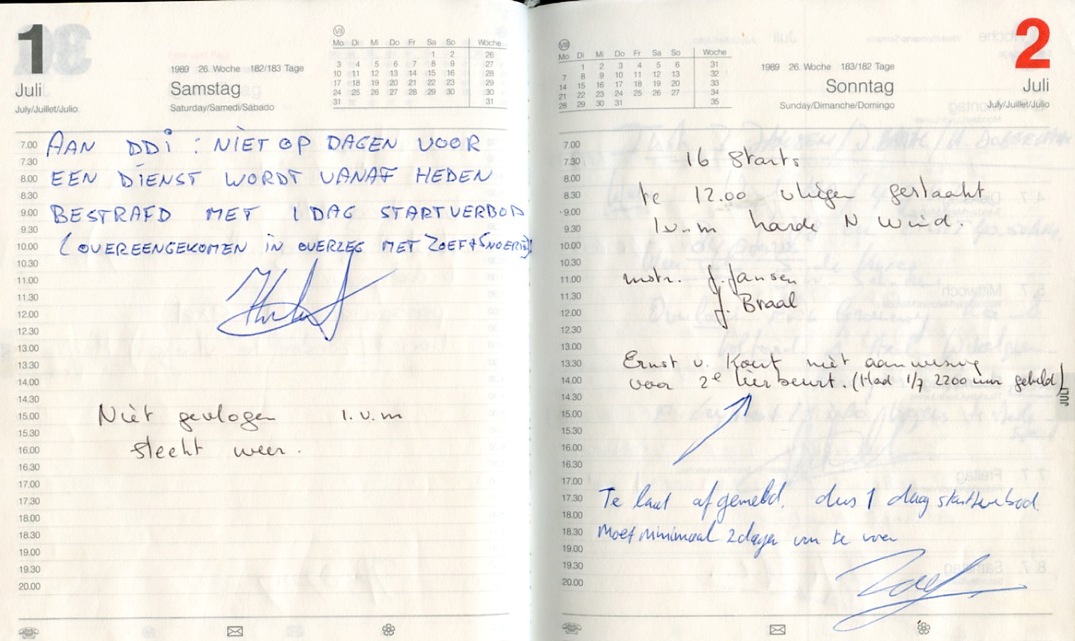 1
Juli
July/Juillet/Julio
1989 26. Woche 182/183 Tage
Samstag
Saturday/Samedi/Sábado
VII
Mo Di Mi Do Fr Sa So Woche
1 2 26
3 4 5 6 7 8 9 27
10 11 12 13 14 15 16 28
17 18 19 20 21 22 23 29
24 25 26 27 28 29 30 30
31 31
7.00
7.30
8.00
8.30
9.00
9.30
10.00
10.30
11.00
11.30
12.00
12.30
13.00
13.30
14.00
14.30
15.00
15.30
16.00
16.30
17.00
17.30
18.00
18.30
19.00
19.30
20.00
AAN DDI : NIET OP DAGEN VOOR
EEN DIENST WORDT VANAF HEDEN
BESTRAFD MET 1 DAG STARTVERBOD
(OVEREENGEKOMEN IN OVERLEG MET ZOEF + SNOERIE)
Niet gevlogen i.v.m
slecht weer.
VIII
Mo Di Mi Do Fr Sa So Woche
1 2 3 4 5 6 31
7 8 9 10 11 12 13 32
14 15 16 17 18 19 20 33
21 22 23 24 25 26 27 34
28 29 30 31 35
1989 26. Woche 183/182 Tage
Sonntag
Sunday/Dimanche/Domingo
2
Juli
July/Juillet/Julio
7.00
7.30
8.00
8.30
9.00
9.30
10.00
10.30
11.00
11.30
12.00
12.30
13.00
13.30
14.00
14.30
15.00
15.30
16.00
16.30
17.00
17.30
18.00
18.30
19.00
19.30
20.00
16 Starts
te 12.00 vliegen gestaakt
i.v.m harde N wind.
instr. J. Jansen
J. Braal
Ernst v. Kout niet aanwezig
voor 2e lierbeurt. (Had 1/7 2200 uur gebeld)
Te laat afgemeld, dus 1 dag startverbod.
Moet minimaal 2 dagen van te voren
Zoef